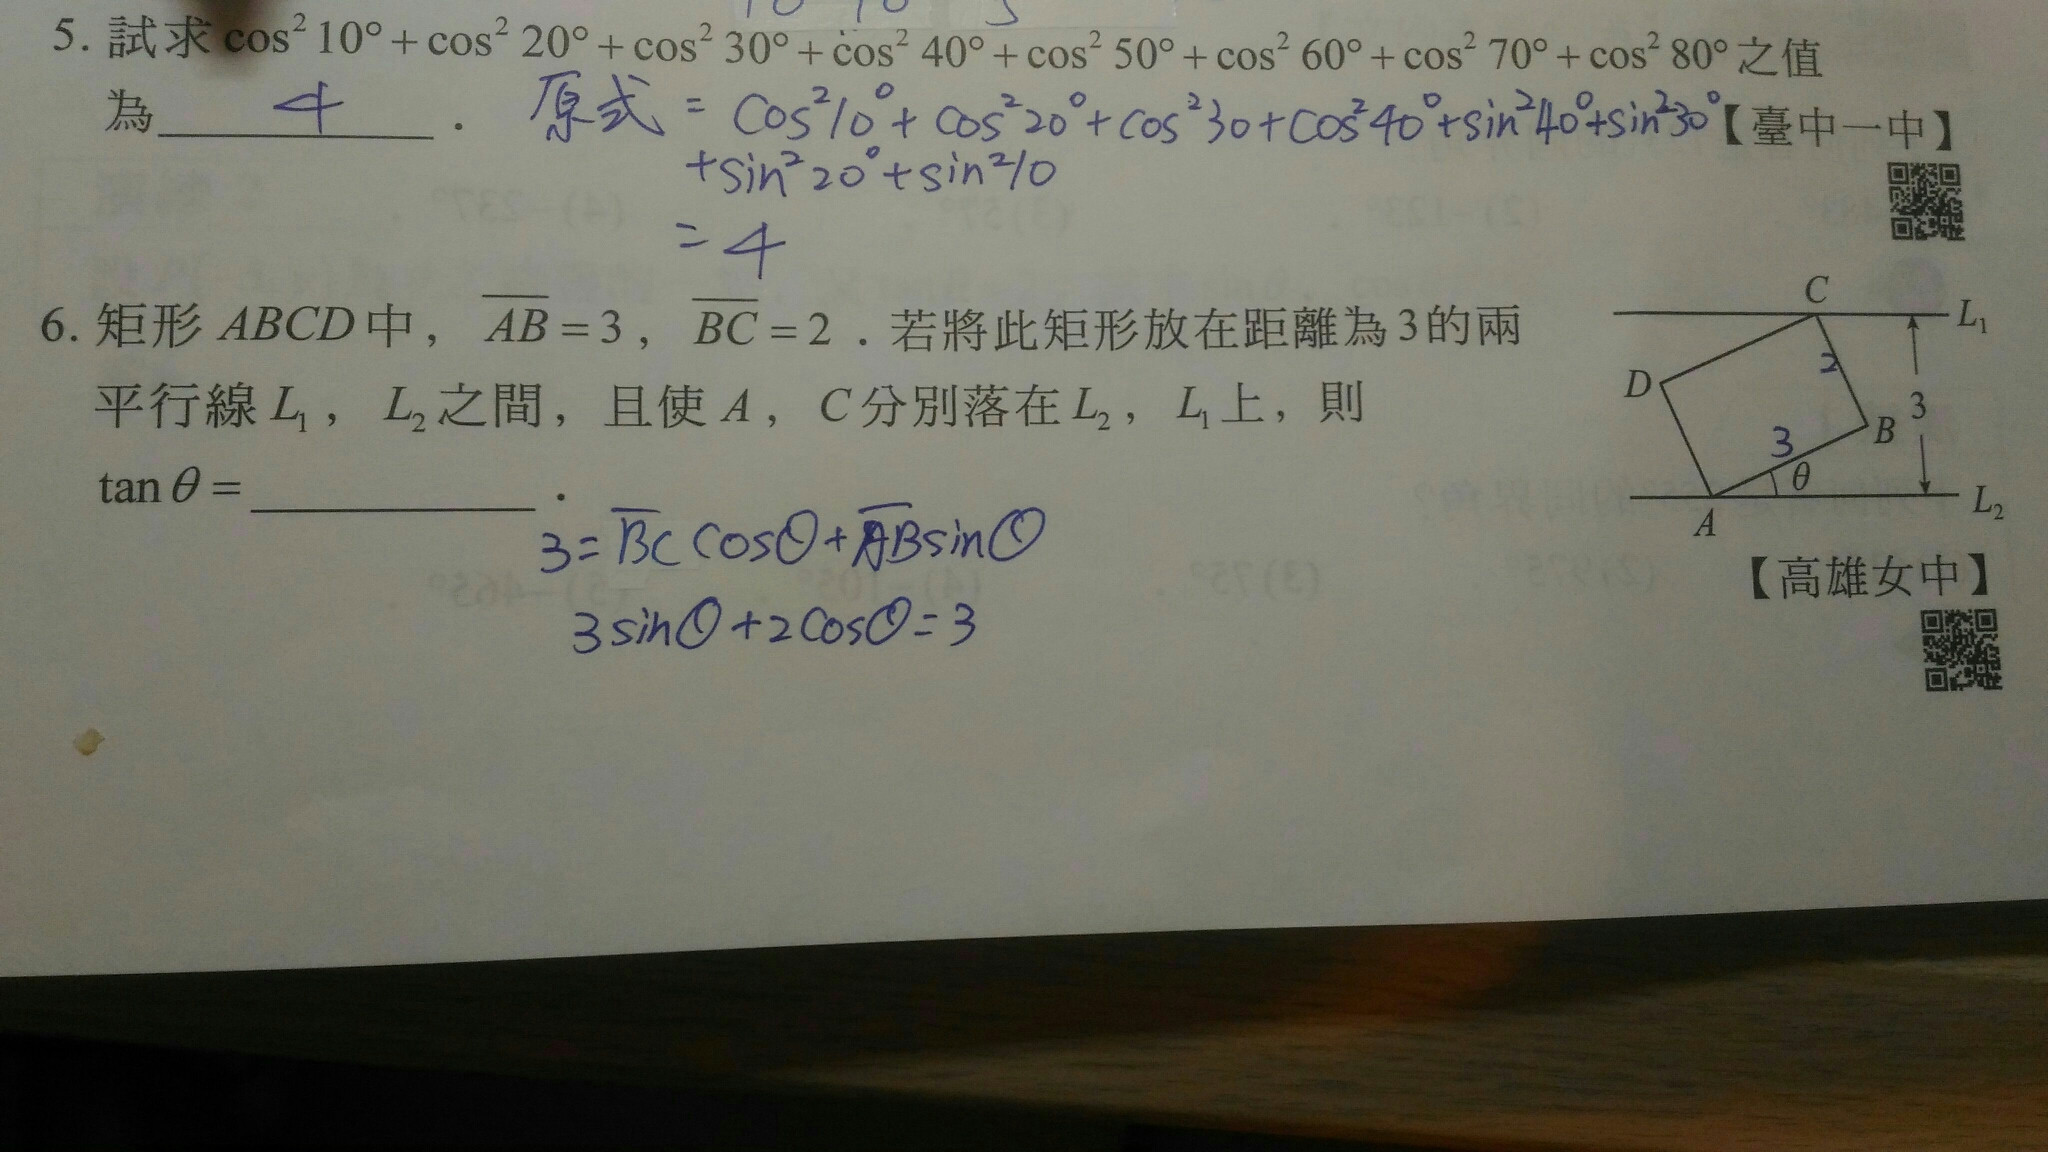 5. 試求 cos² 10° + cos² 20° + cos² 30° + cos² 40° + cos² 50° + cos² 60° + cos² 70° + cos² 80° 之值
為 4 . 原式 = cos²10° + cos²20° + cos²30 + cos²40° + sin²40° + sin²30° 【臺中一中】
+ sin²20° + sin²10
= 4
6. 矩形 ABCD 中， AB = 3， BC = 2．若將此矩形放在距離為 3 的兩
平行線 L₁， L₂ 之間，且使 A， C 分別落在 L₂， L₁ 上，則
tan θ = ______ .
3 = BC cosθ + AB sinθ
3 sinθ + 2 cosθ = 3
C
L₁
2
D
3
3
B
θ
A
L₂
【高雄女中】